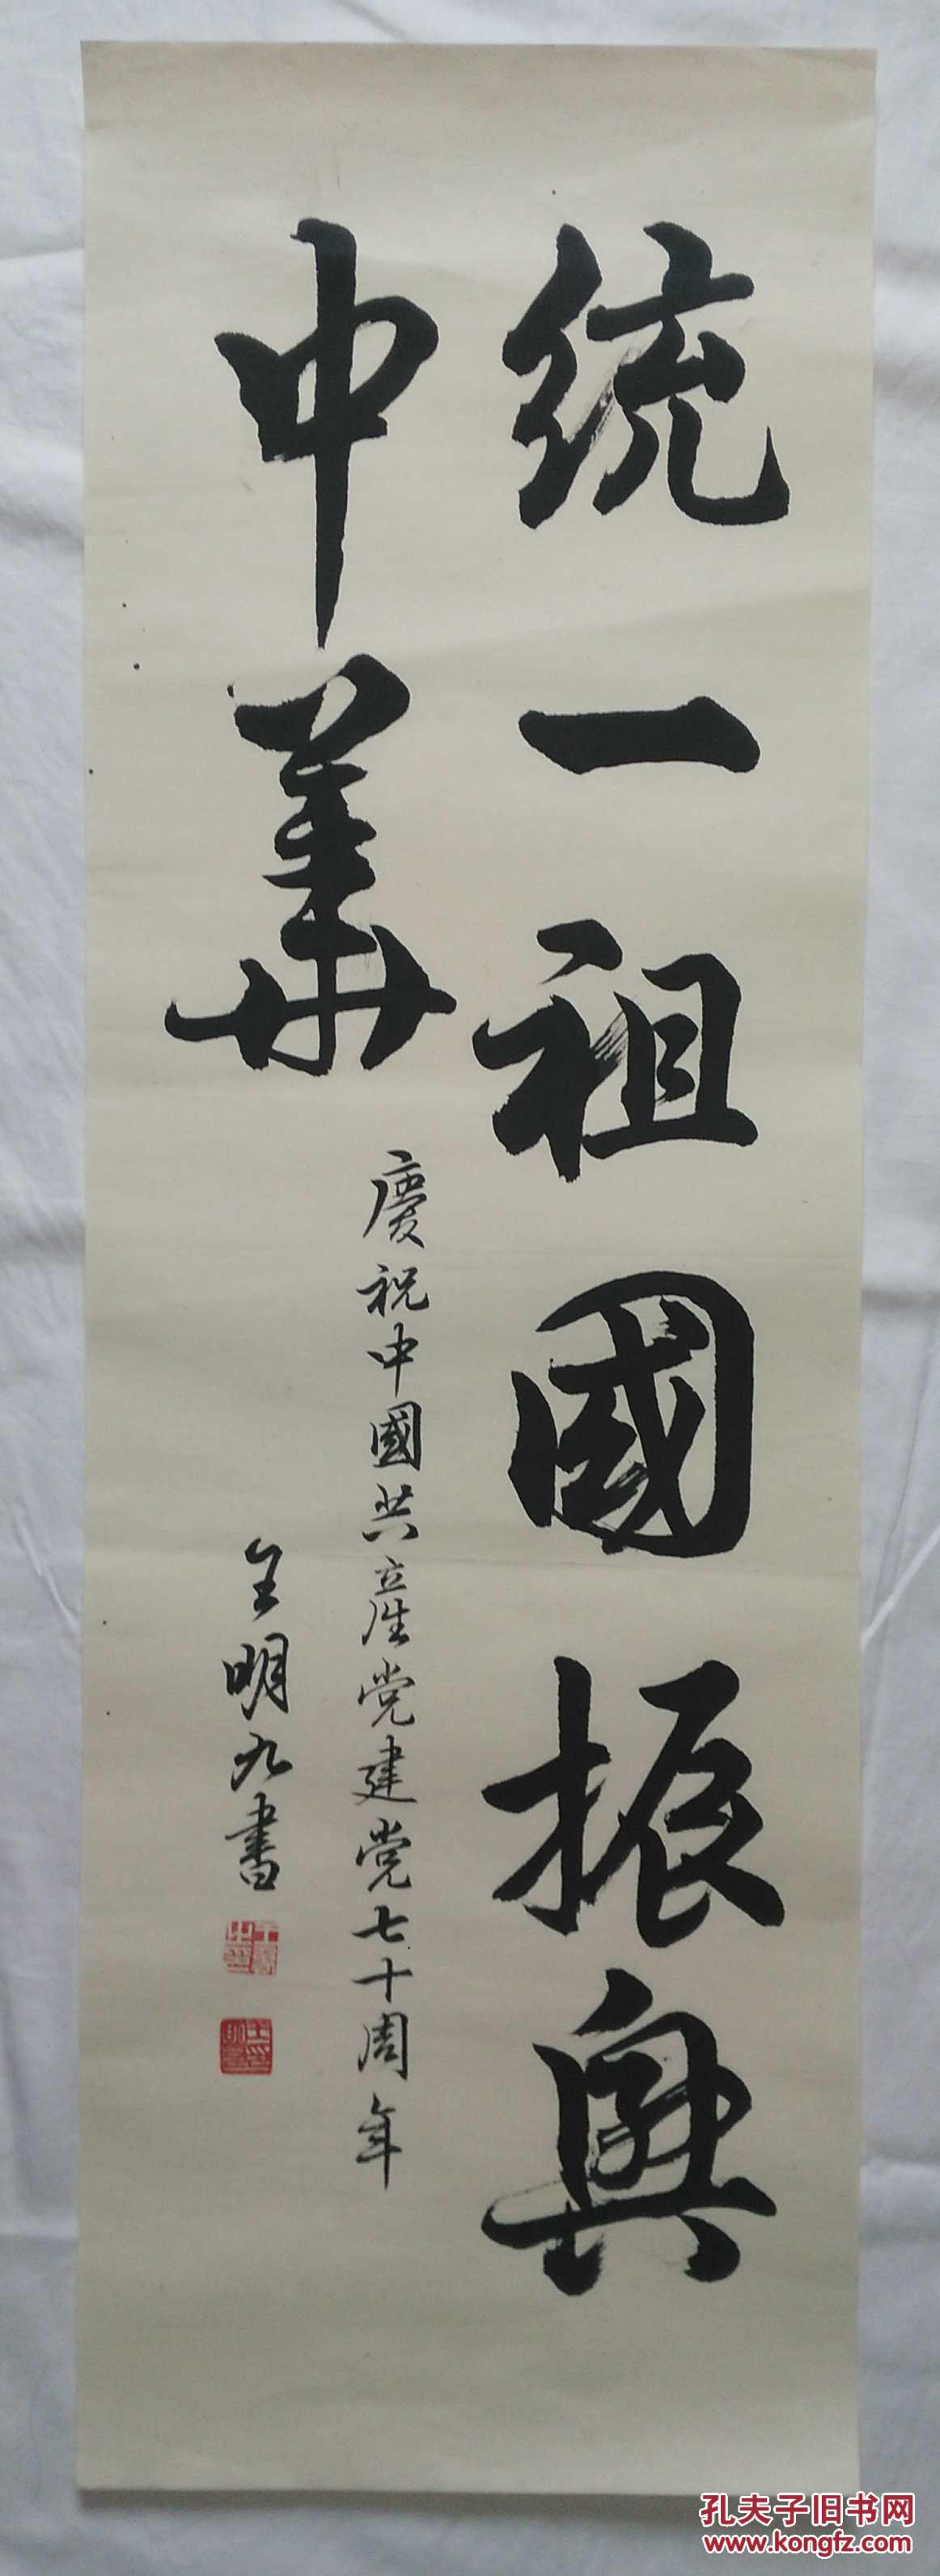 统一祖國振興
中華
慶祝中國共産党建党七十周年
王明九書
孔夫子旧书网
www.kongfz.com